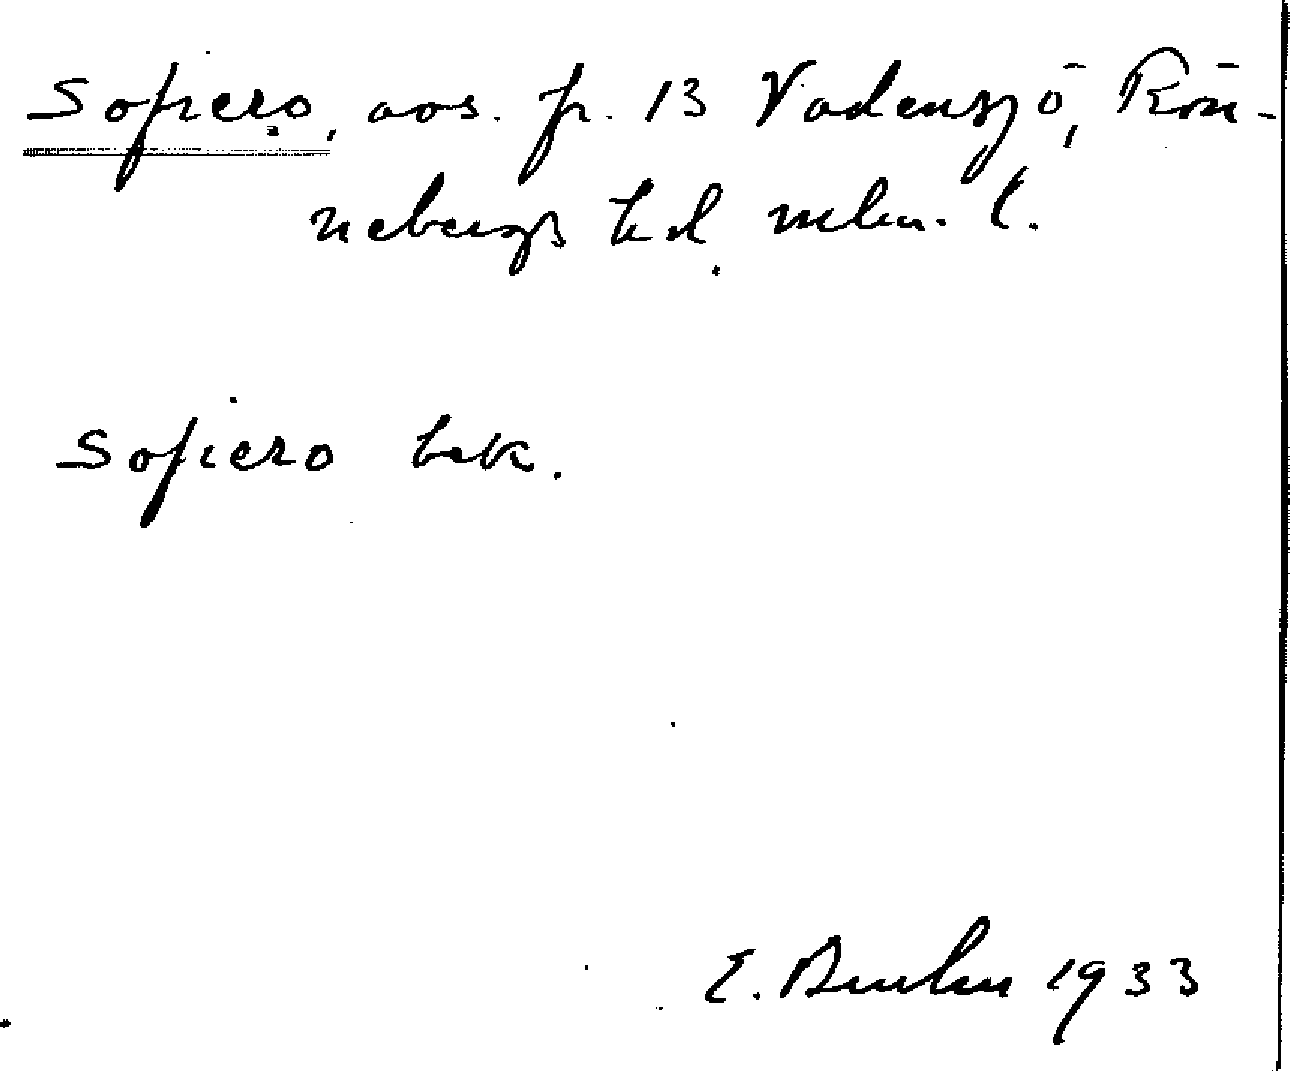 Sofiero, avs. fr. 13 Vadensjö, Rön-
nebergs hd. mlm. l.
Sofiero bek.
E. 1933